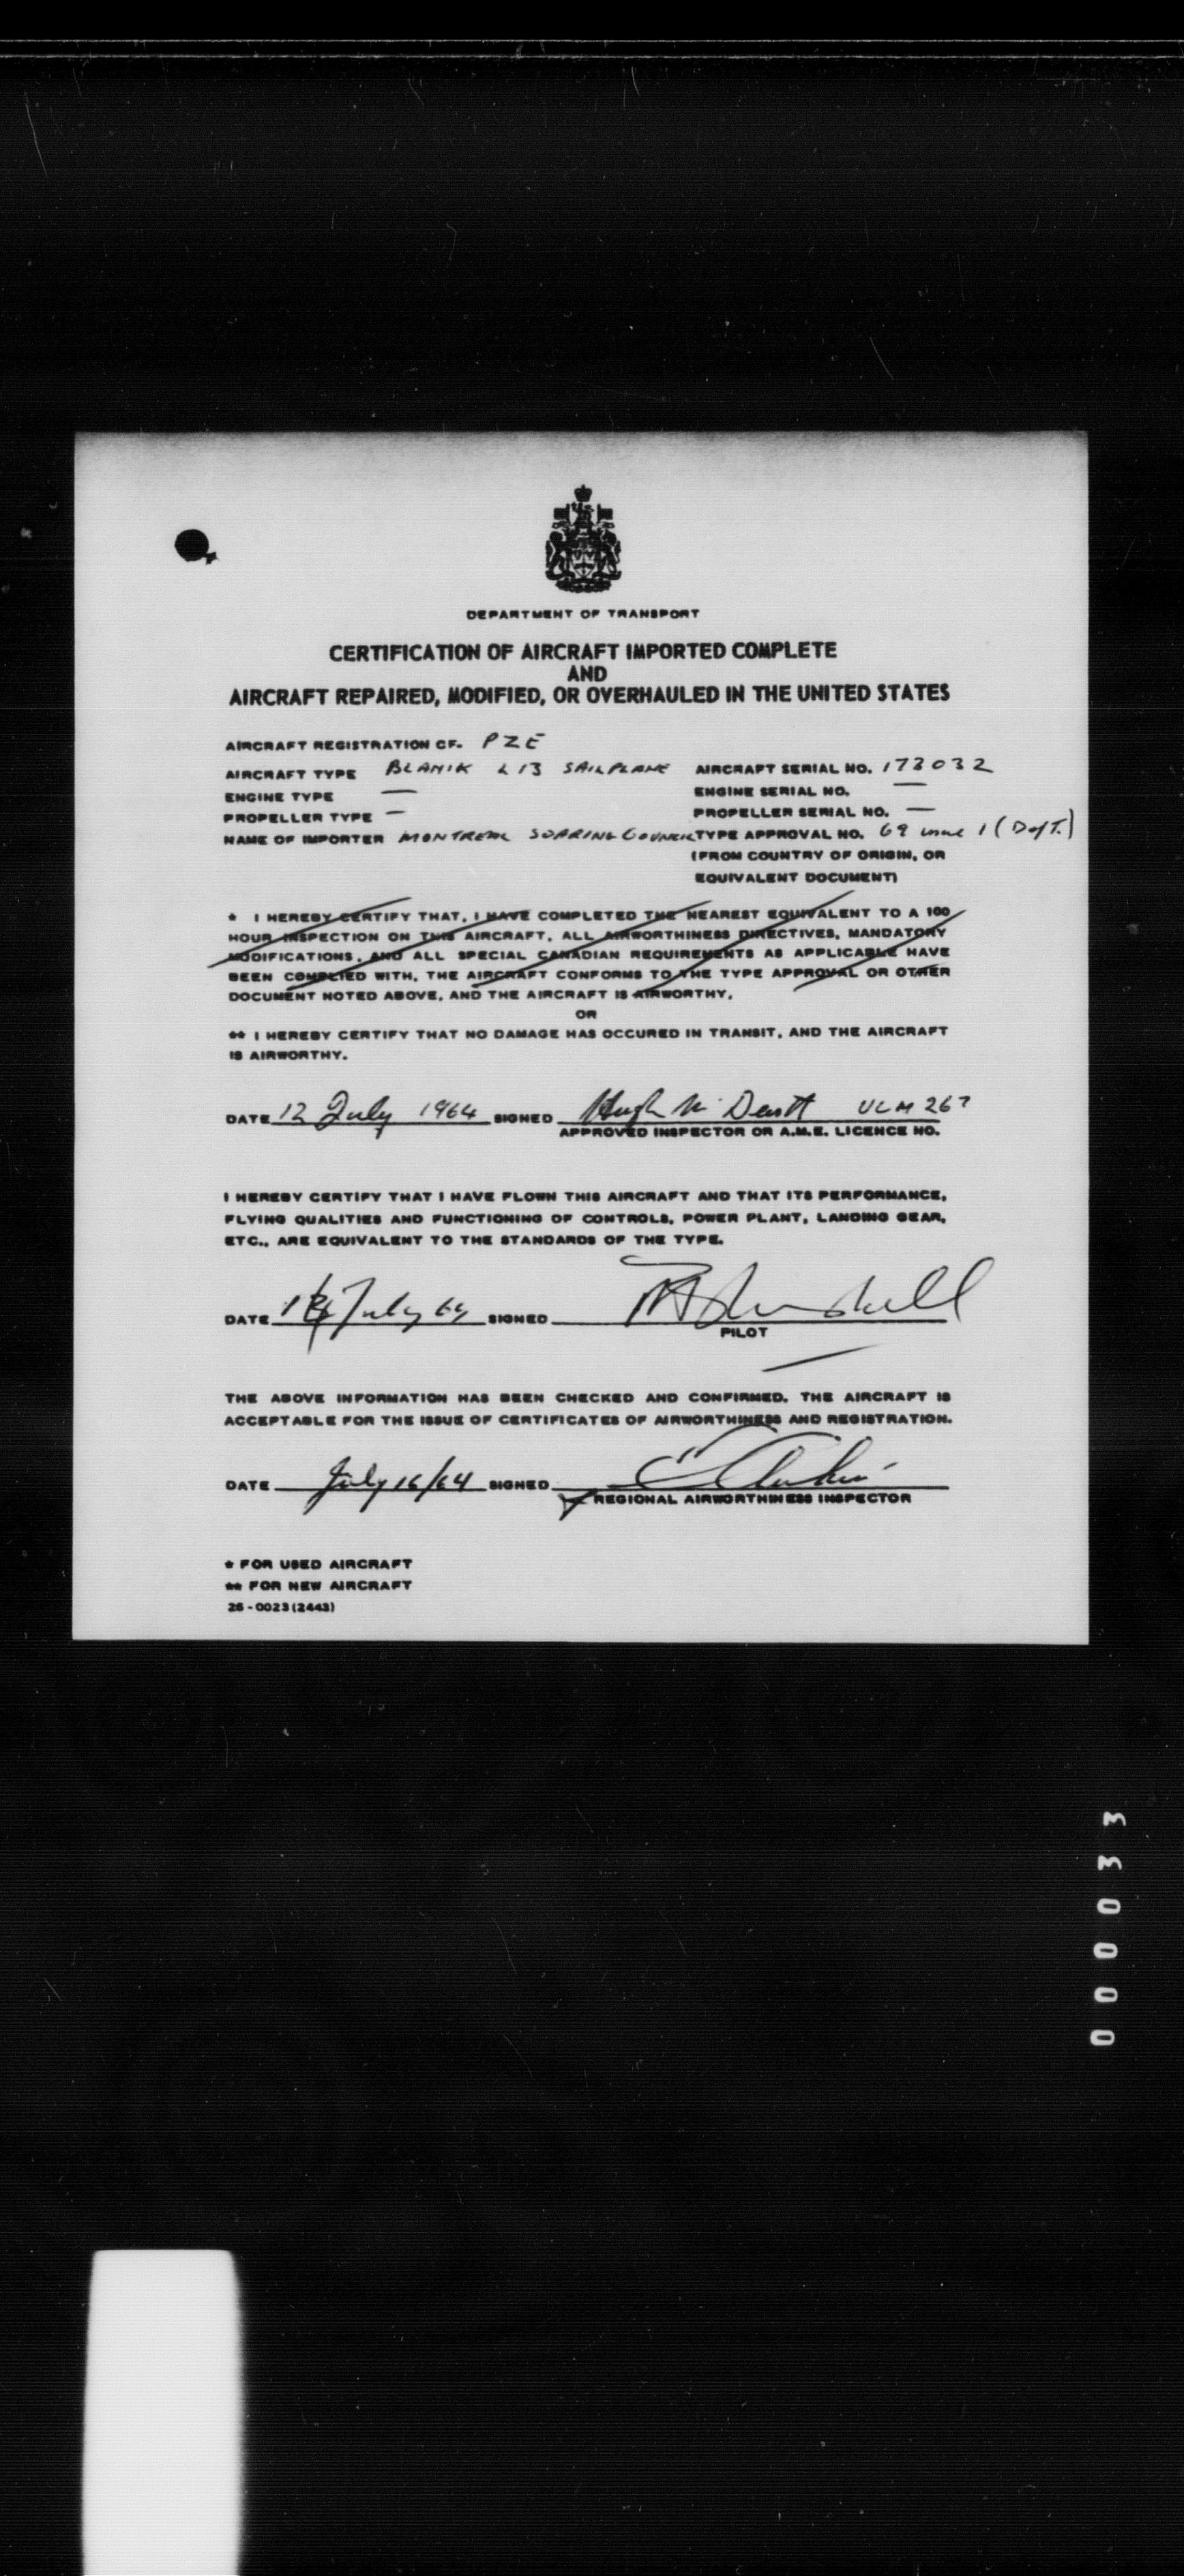 DEPARTMENT OF TRANSPORT
CERTIFICATION OF AIRCRAFT IMPORTED COMPLETE
AND
AIRCRAFT REPAIRED, MODIFIED, OR OVERHAULED IN THE UNITED STATES
AIRCRAFT REGISTRATION CF. PZE
AIRCRAFT TYPE BLANIK L13 SAILPLANE AIRCRAFT SERIAL NO. 173032
ENGINE TYPE — ENGINE SERIAL NO. —
PROPELLER TYPE — PROPELLER SERIAL NO. —
NAME OF IMPORTER MONTREAL SOARING COUNCIL TYPE APPROVAL NO. 69 issue 1 (DofT.)
(FROM COUNTRY OF ORIGIN, OR
EQUIVALENT DOCUMENT)
* I HEREBY CERTIFY THAT, I HAVE COMPLETED THE NEAREST EQUIVALENT TO A 100
HOUR INSPECTION ON THIS AIRCRAFT, ALL AIRWORTHINESS DIRECTIVES, MANDATORY
MODIFICATIONS, AND ALL SPECIAL CANADIAN REQUIREMENTS AS APPLICABLE HAVE
BEEN COMPLIED WITH, THE AIRCRAFT CONFORMS TO THE TYPE APPROVAL OR OTHER
DOCUMENT NOTED ABOVE, AND THE AIRCRAFT IS AIRWORTHY.
OR
** I HEREBY CERTIFY THAT NO DAMAGE HAS OCCURED IN TRANSIT, AND THE AIRCRAFT
IS AIRWORTHY.
DATE 12 July 1964 SIGNED Hugh ULM 267
APPROVED INSPECTOR OR A.M.E. LICENCE NO.
I HEREBY CERTIFY THAT I HAVE FLOWN THIS AIRCRAFT AND THAT ITS PERFORMANCE,
FLYING QUALITIES AND FUNCTIONING OF CONTROLS, POWER PLANT, LANDING GEAR,
ETC., ARE EQUIVALENT TO THE STANDARDS OF THE TYPE.
DATE July 64 SIGNED
PILOT
THE ABOVE INFORMATION HAS BEEN CHECKED AND CONFIRMED. THE AIRCRAFT IS
ACCEPTABLE FOR THE ISSUE OF CERTIFICATES OF AIRWORTHINESS AND REGISTRATION.
DATE July 16/64 SIGNED
REGIONAL AIRWORTHINESS INSPECTOR
* FOR USED AIRCRAFT
** FOR NEW AIRCRAFT
26-0023 (2443)
000033